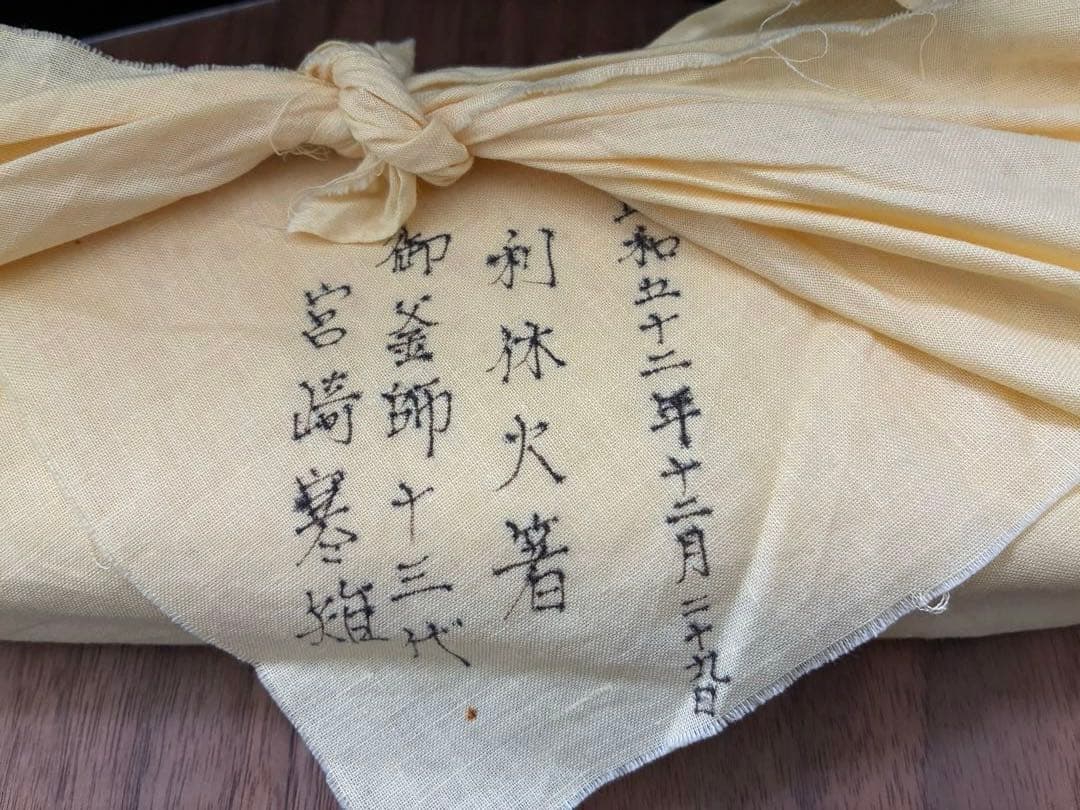 昭和五十二年十二月二十九日
利休火箸
御釜師十三代
宮崎寒雉